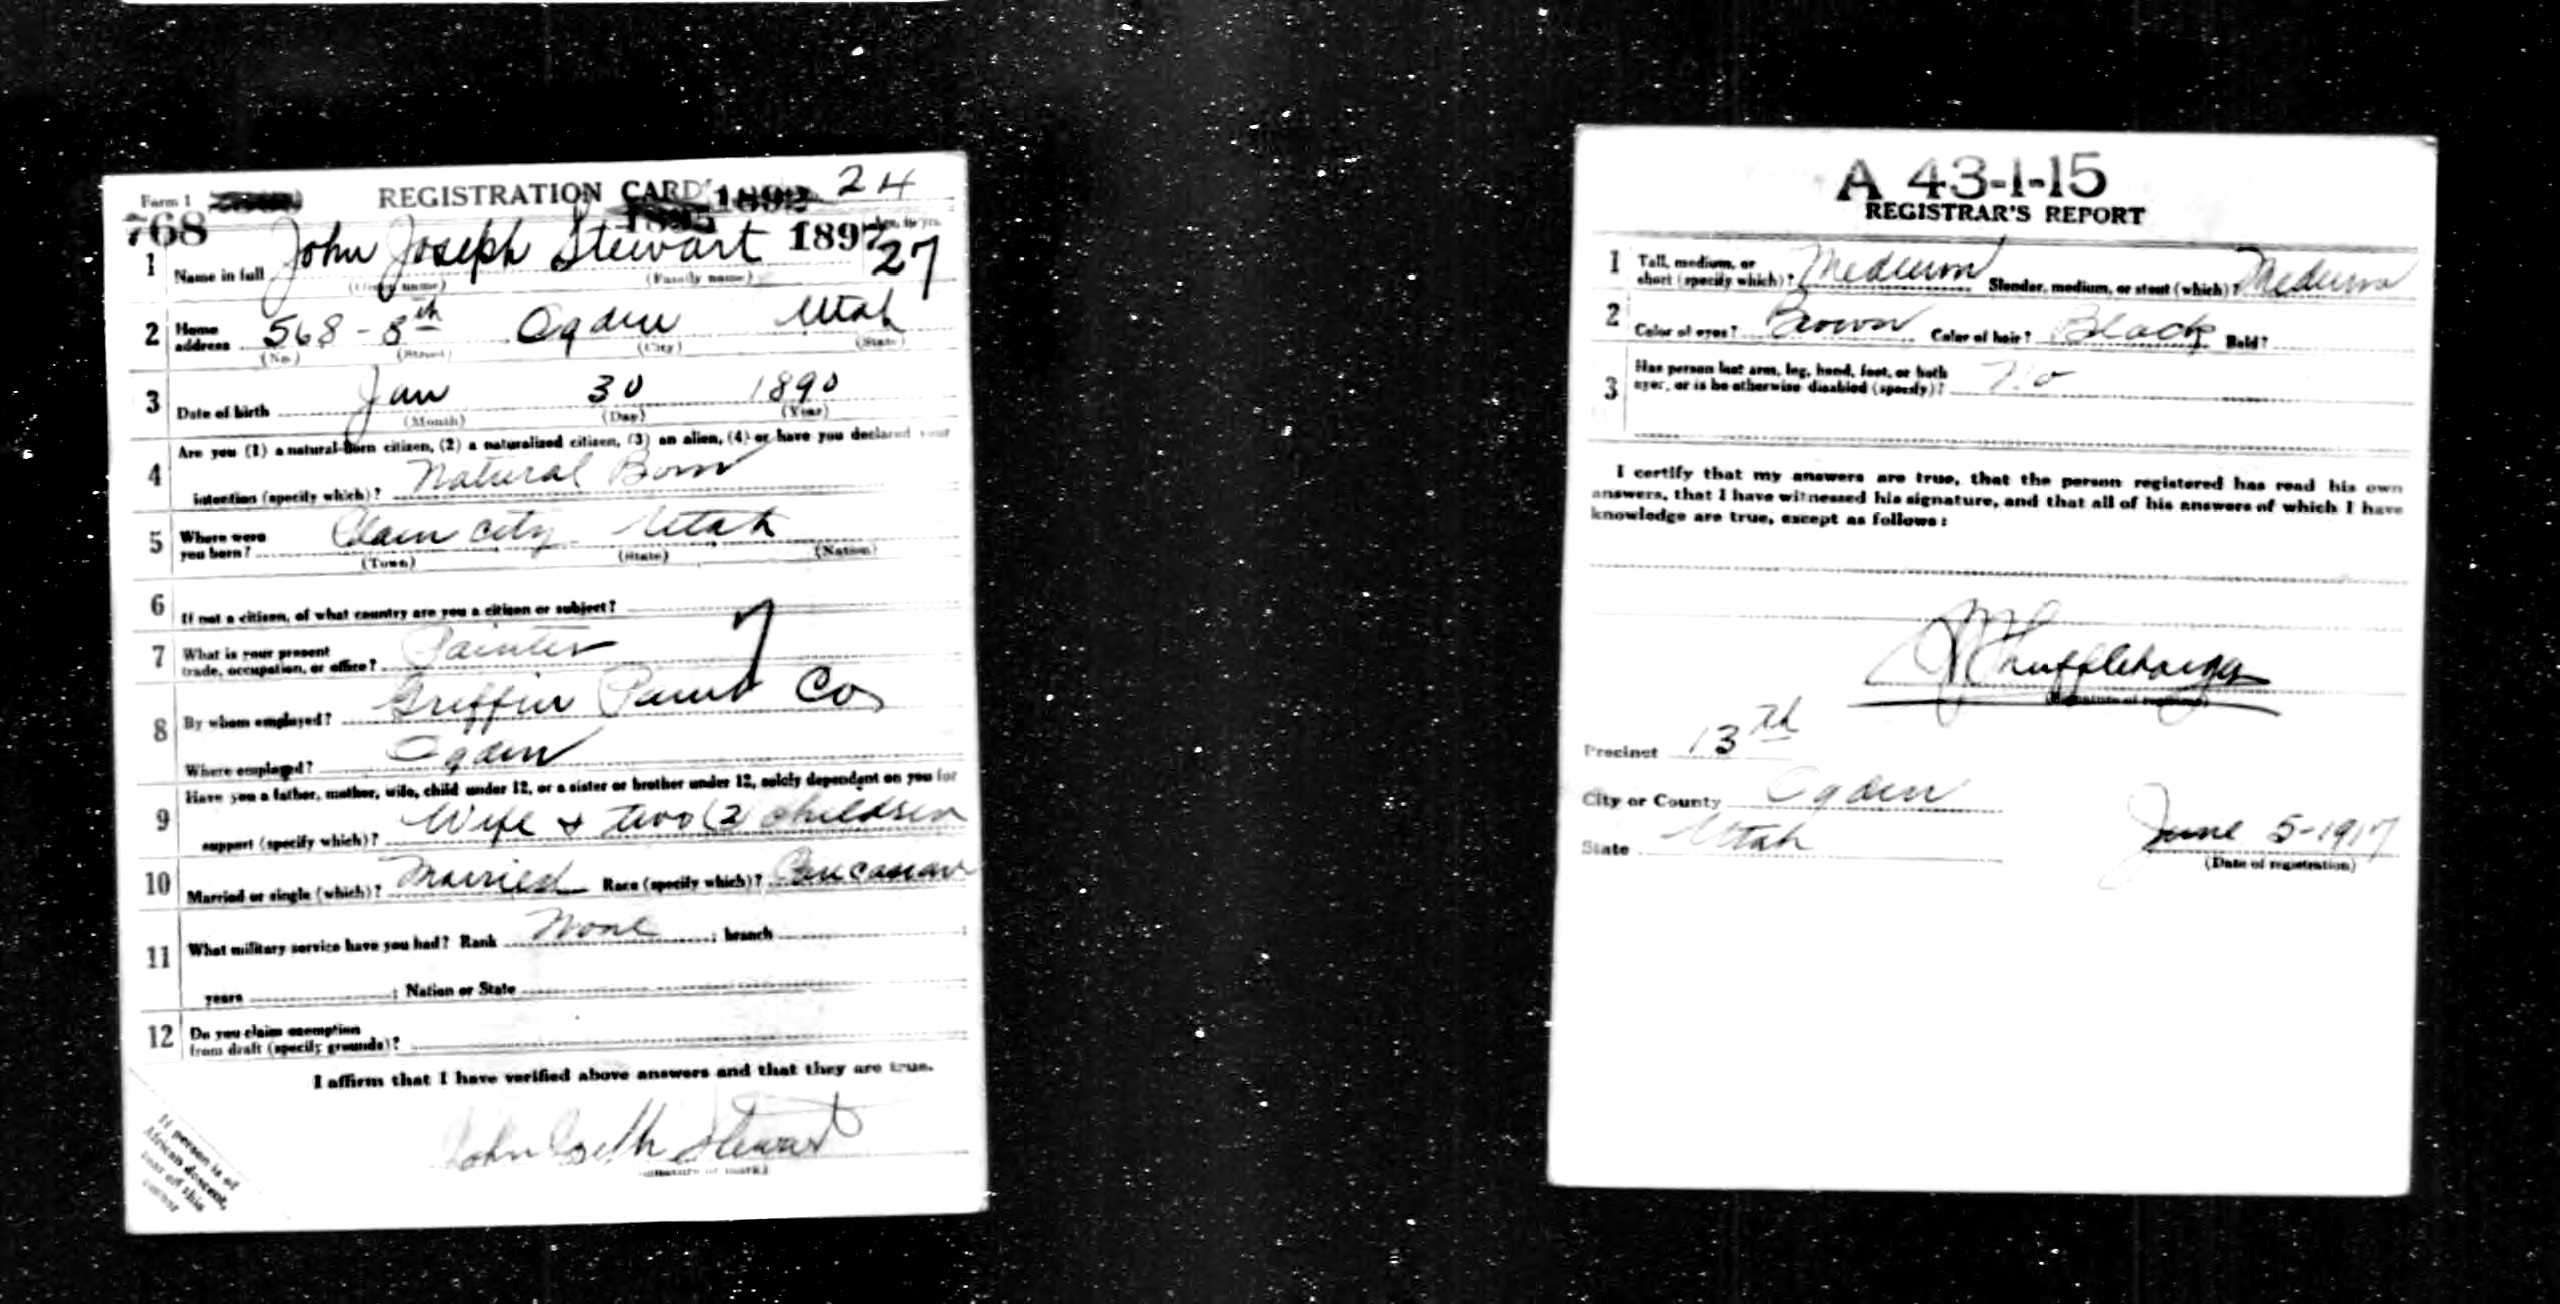 Form 1
REGISTRATION CARD 24
768
1892
1897
1 Name in full John Joseph Stewart 27
(Given name) (Family name)
2 Home address 568 - 8th Ogden Utah
(No.) (Street) (City) (State)
3 Date of birth Jan 30 1890
(Month) (Day) (Year)
Are you (1) a natural-born citizen, (2) a naturalized citizen, (3) an alien, (4) or have you declared your
4 intention (specify which)? Natural Born
5 Where were you born? Plain City Utah
(Town) (State) (Nation)
6 If not a citizen, of what country are you a citizen or subject?
7 What is your present
trade, occupation, or office? Painter
8 By whom employed? Griffin Paint Co
Where employed? Ogden
Have you a father, mother, wife, child under 12, or a sister or brother under 12, solely dependent on you for
9 support (specify which)? Wife & two (2 children
10 Married or single (which)? Married Race (specify which)? Caucasian
11 What military service have you had? Rank None ; branch ;
years ; Nation or State
12 Do you claim exemption
from draft (specify grounds)?
I affirm that I have verified above answers and that they are true.
John Joseph Stewart
(Signature or mark)
If person is of
African descent,
tear off this
corner
A 43-1-15
REGISTRAR'S REPORT
1 Tall, medium, or
short (specify which)? Medium Slender, medium, or stout (which)? Medium
2 Color of eyes? Brown Color of hair? Black Bald?
Has person lost arm, leg, hand, foot, or both
3 eyes, or is he otherwise disabled (specify)? No
I certify that my answers are true, that the person registered has read his own
answers, that I have witnessed his signature, and that all of his answers of which I have
knowledge are true, except as follows:
(Signature of registrar)
Precinct 13th
City or County Ogden
State Utah June 5-1917
(Date of registration)